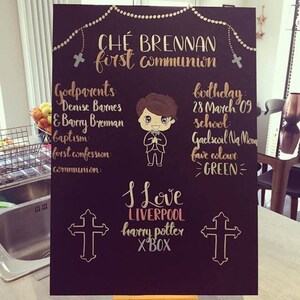 CHÉ BRENNAN
first communion
Godparents
Denise Barnes
& Barry Brennan
baptism
first confession
communion
birthday
28 March '09
school
Gaelscoil Na Mona
fave colour
GREEN
I Love
LIVERPOOL
harry potter
XBOX